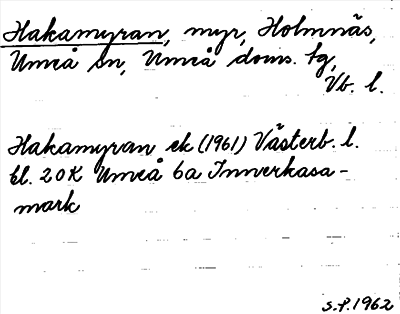 Hakamyran, myr, Holmnäs,
Umeå sn, Umeå doms. tg,
Vb. l.
Hakamyran ek (1961) Västerb. l.
bl. 20K Umeå 6a Innerkasa-
mark
S.P. 1962